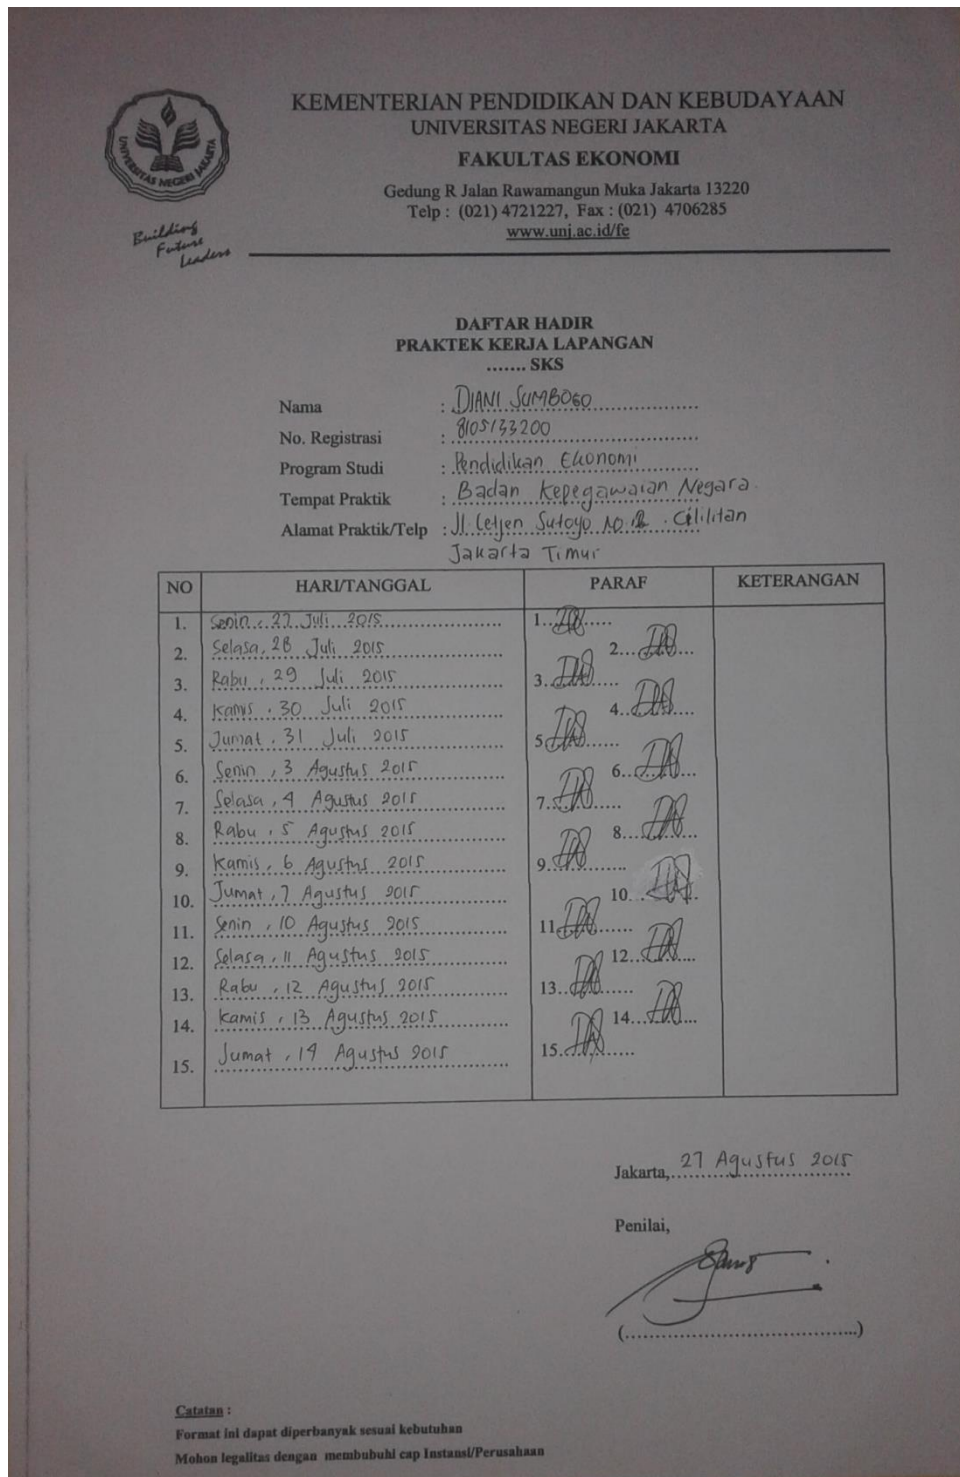 KEMENTERIAN PENDIDIKAN DAN KEBUDAYAAN
UNIVERSITAS NEGERI JAKARTA
FAKULTAS EKONOMI
Gedung R Jalan Rawamangun Muka Jakarta 13220
Telp : (021) 4721227, Fax : (021) 4706285
www.unj.ac.id/fe
UNIVERSITAS NEGERI JAKARTA
Building
Future
Leaders
DAFTAR HADIR
PRAKTEK KERJA LAPANGAN
....... SKS
Nama : DIANI SUMBOGO
No. Registrasi : 8105133200
Program Studi : Pendidikan Ekonomi
Tempat Praktik : Badan Kepegawaian Negara
Alamat Praktik/Telp : Jl. Letjen Sutoyo No. Cililitan
Jakarta Timur
NO HARI/TANGGAL PARAF KETERANGAN
1. Senin, 27 Juli 2015 1.
2. Selasa, 28 Juli 2015 2.
3. Rabu, 29 Juli 2015 3.
4. Kamis, 30 Juli 2015 4.
5. Jumat, 31 Juli 2015 5
6. Senin, 3 Agustus 2015 6.
7. Selasa, 4 Agustus 2015 7.
8. Rabu, 5 Agustus 2015 8.
9. Kamis, 6 Agustus 2015 9.
10. Jumat, 7 Agustus 2015 10.
11. Senin, 10 Agustus 2015 11.
12. Selasa, 11 Agustus 2015 12.
13. Rabu, 12 Agustus 2015 13.
14. Kamis, 13 Agustus 2015 14.
15. Jumat, 14 Agustus 2015 15.
Jakarta, 27 Agustus 2015
Penilai,
(......................................)
Catatan :
Format ini dapat diperbanyak sesuai kebutuhan
Mohon legalitas dengan membubuhi cap Instansi/Perusahaan